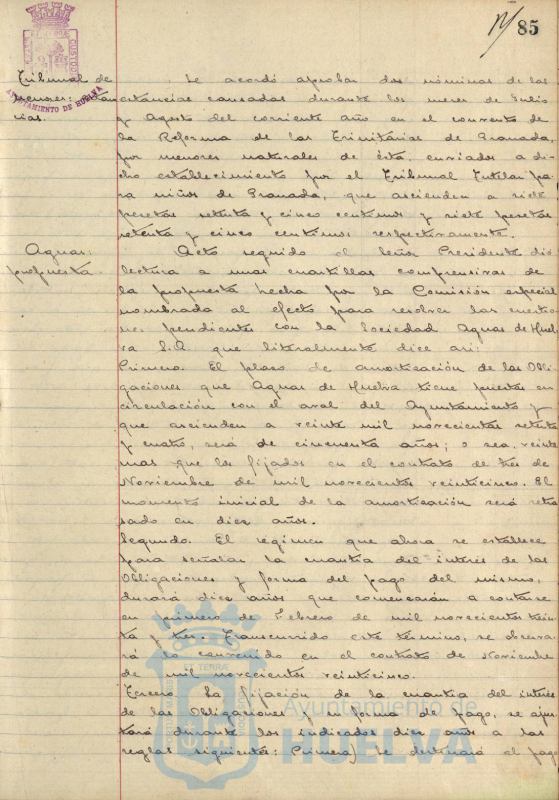 85
AYUNTAMIENTO DE HUELVA
Tribunal de
menores: Estan
cias.
Se acordó aprobar dos nóminas de las
estancias causadas durante los meses de Julio
y Agosto del corriente año en el convento de
la Reforma de las Trinitarias de Granada,
por menores naturales de ésta, enviados a di-
cho establecimiento por el Tribunal Tutelar pa-
ra niños de Granada, que ascienden a siete
pesetas setenta y cinco centimos y siete pesetas
setenta y cinco centimos respectivamente.
Aguas:
propuesta
Acto seguido el Señor Presidente dió
lectura a unas cuartillas comprensivas de
la propuesta hecha por la Comisión especial
nombrada al efecto para resolver las cuestio-
nes pendientes con la Sociedad Aguas de Huel-
va S.A. que literalmente dice asi:
Primero. El plazo de amortización de las Obli-
gaciones que Aguas de Huelva tiene puestas en
circulación con el aval del Ayuntamiento y
que ascienden a veinte mil novecientas setenta
y cuatro, será de cincuenta años; o sea, veinte
mas que los fijados en el contrato de tres de
Noviembre de mil novecientos veinticinco. El
momento inicial de la amortización será retra
sado en diez años.
Segundo. El regimen que ahora se establece
para señalar la cuantia del interés de las
Obligaciones y forma del pago del mismo,
durará diez años que comenzarán a contarse
en primero de Febrero de mil novecientos trein
ta y tres. Transcurrido este término, se observa-
rá lo convenido en el contrato de Noviembre
de mil novecientos veinticinco.
Tercero. La fijación de la cuantia del interés
de las Obligaciones y su forma de pago, se ajus
tará durante los indicados diez años a las
reglas siguientes: Primera) Se destinará al pago
Ayuntamiento de
HUELVA